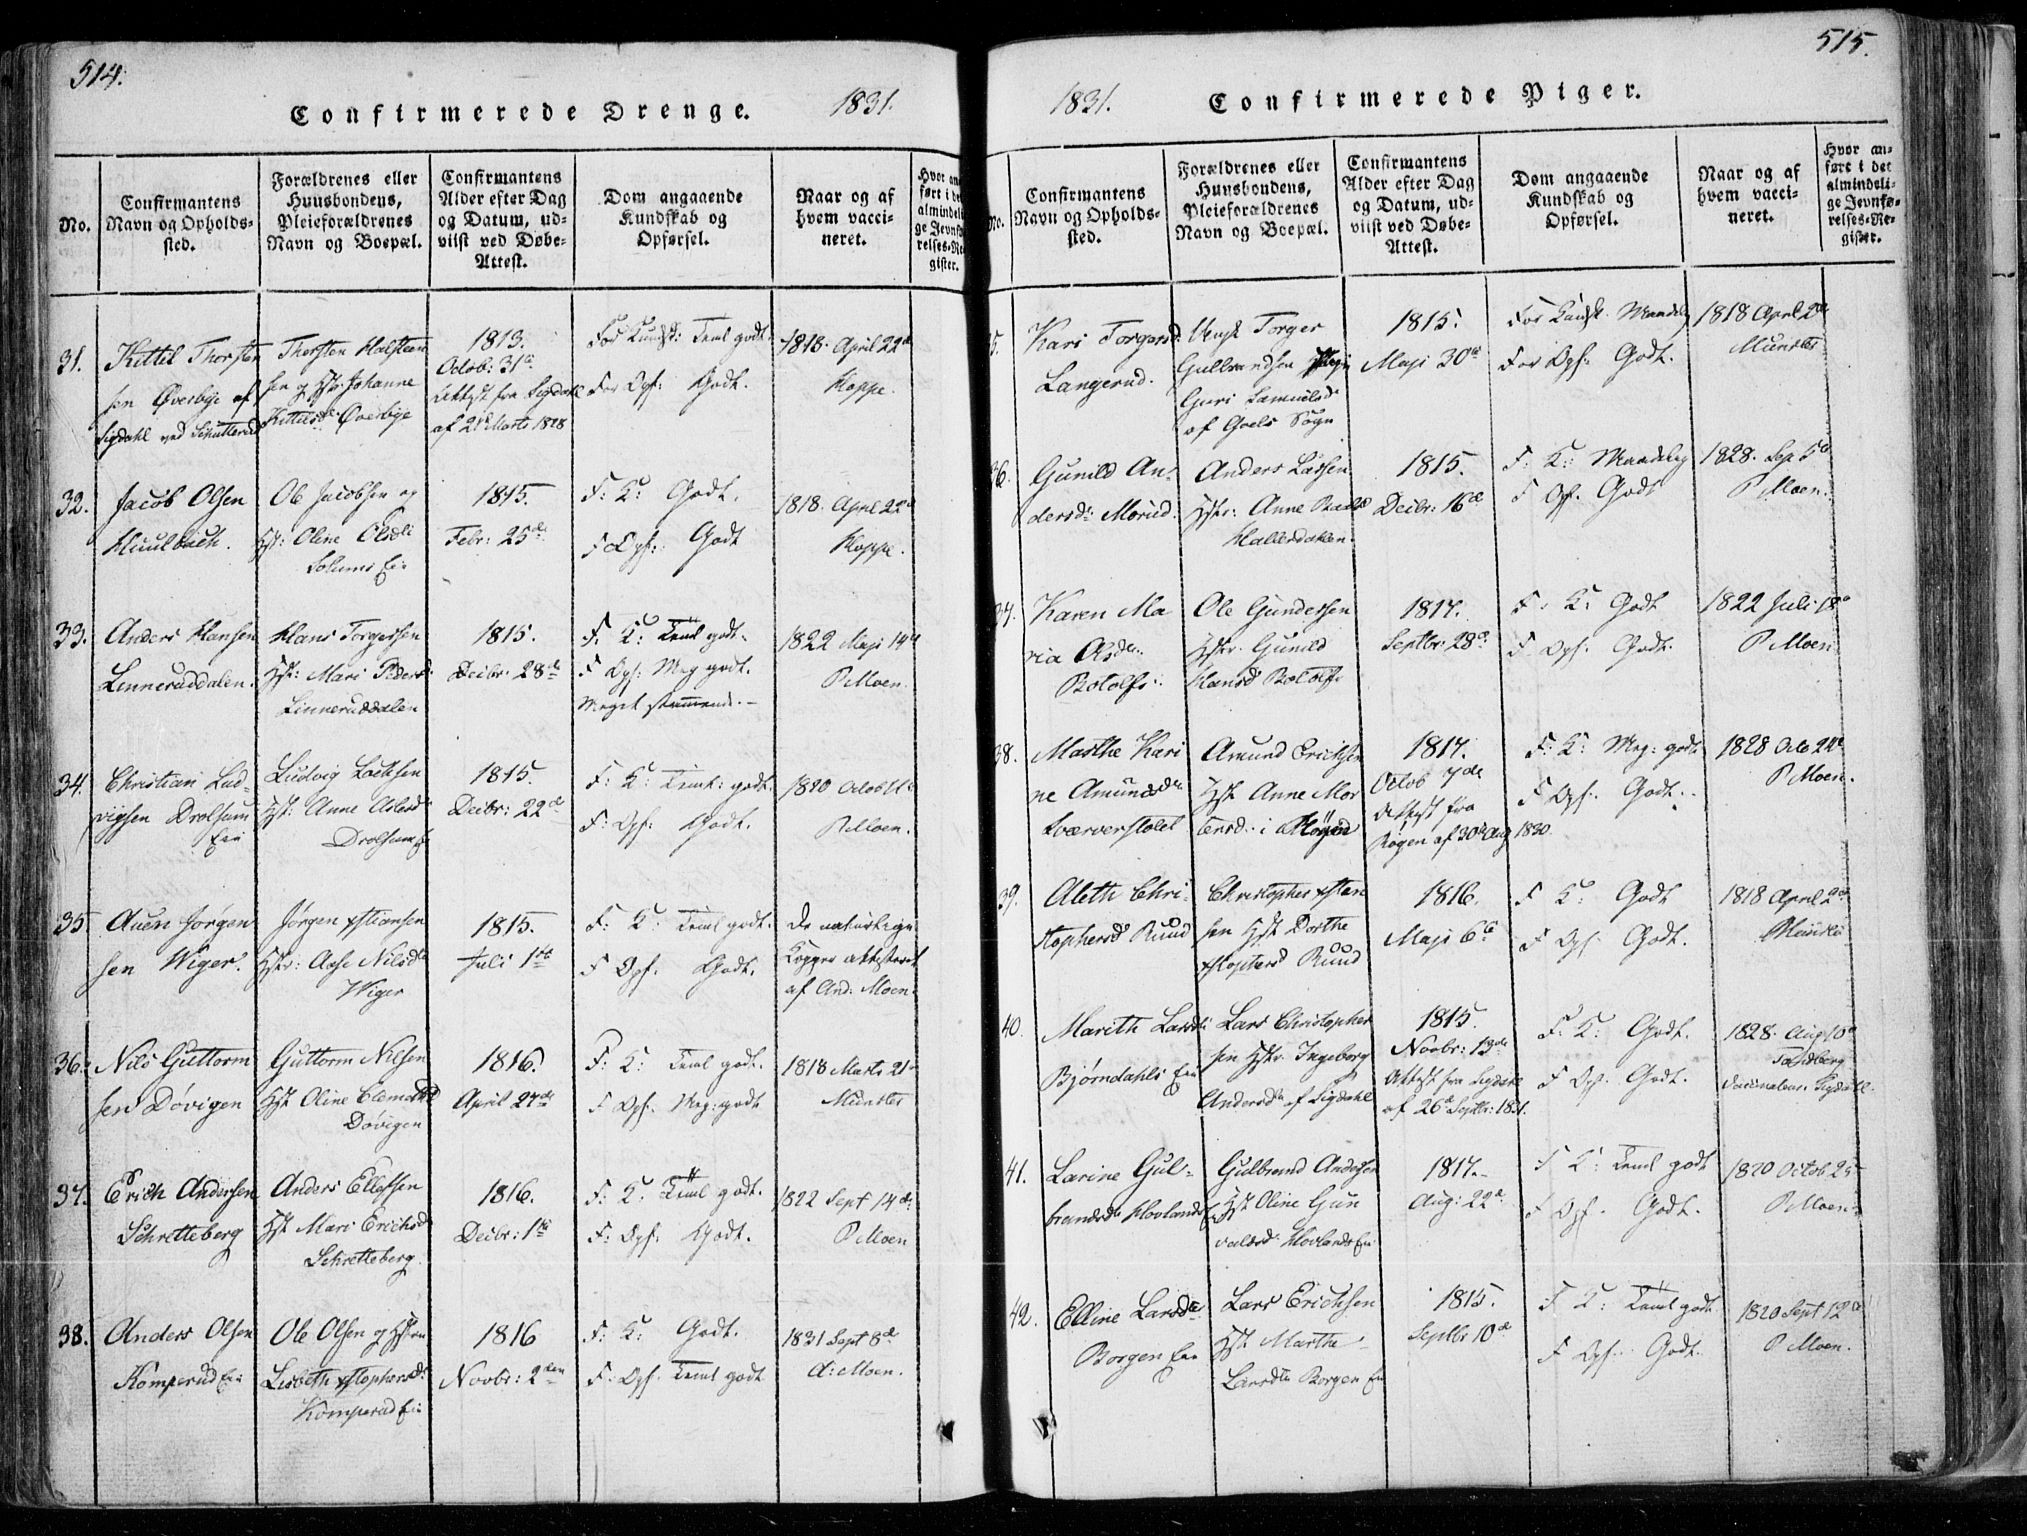 514.
Confirmerede Drenge.
1831.
No.
Confirmantens
Navn og Opholds-
sted.
Forældrenes eller
Huusbondens,
Pleieforældrenes
Navn og Boepæl.
Confirmantens
Alder efter Dag
og Datum, ud-
viist ved Døbe-
Attest.
Dom angaaende
Kundskab og
Opførsel.
Naar og af
hvem vacci-
neret.
Hvor an-
ført i det
almindeli-
ge Jevnfø-
relses-Re-
gister.
31.
Kittil Thorsten
sen Øverbye af
Sigdahl ved Schutterud
Thorsten Halsteen
sen og Hstr Johanne
Kittilsd. Øverbye
1813.
Octob: 31te
Attest fra Sigdahl
af 21 Marts 1828
For Kundsk: Teml godt
For Opf: Godt.
1818. April 22d
Hoppe.
32.
Jacob Olsen
Huulbach.
Ole Jacobsen og
Hst: Oline Olsdtr
Solums Eie
1815.
Febr: 25de
F: K: Godt.
F Opf: Godt
1818. April 22d
Hoppe.
33.
Anders Hansen
Linneruddalen.
Hans Torgersen
Hst: Mari Pedersd
Linneruddalen
1815.
Decbr: 28de
F. K: Teml godt.
F Opf: Meg godt.
Meget stammende. –
1822 Maji 14d
P Moen.
34.
Christian Lud-
vigsen Drolsum
Eie
Ludvig
Hst: Anne
Drolsum Eie
1815.
Decbr: 22de
F: K: Teml: godt.
F: Opf: Godt.
1820 Octob 11te
P Moen.
35
Auen Jørgen
sen Wiger.
Jørgen Xstiansen
Hstr: Aase Nilsdtr
Wiger
1815.
Juli 1ste
F: K: Teml godt.
F Opf. Godt.
De naturlige
Kopper attesteret
af And: Moen.
36.
Nils Guttorm
sen Døvigen
Guttorm Nilsen
Hst Oline Clemetsd
Døvigen
1816.
April 27de
F: K: Teml godt.
F Opf. Meg: godt
1818 Marts 21
Munster
37.
Erich Andersen
Schretteberg
Anders Ellefsen
Hst Mari Erichsd
Schretteberg.
1816.
Decbr: 1ste
F: K: Teml godt.
F: Opf: Godt.
1822 Sept 14de
P Moen
38.
Anders Olsen
Komperud Eie
Ole Olsen og Hstru
Lisbeth Xstophersd:
Komperud Eie
1816
Novbr: 2den
F: K: Godt.
F: Opf. Teml godt
1831 Sept 8de
A: Moen.
515.
1831.
Confirmerede Piger.
No.
Confirmantens
Navn og Opholds-
sted.
Forældrenes eller
Huusbondens,
Pleieforældrenes
Navn og Boepæl.
Confirmantens
Alder efter Dag
og Datum, ud-
viist ved Døbe-
Attest.
Dom angaaende
Kundskab og
Opførsel.
Naar og af
hvem vacci-
neret.
Hvor an-
ført i det
almindeli-
ge Jevnfø-
relses-Re-
gister.
5.
Kari Torgersd
Langerud.
Torger
Gulbrandsen
Guri Samuelsd
af Goels Sogn
1815.
Maji 30te
For Kundsk. Maadelig
For Opf: Godt.
1818 April 2de
Munster
36.
Gunild An-
dersdtr Morud.
Anders Larsen
Hstr: Anne
Hallesdalen.
1815.
Decbr: 16de
F: K: Maadelig
F Opf. Godt
1828. Sep 5te
P Moen.
37.
Karen Ma
ria Olsdtr.
Botolfs.
Ole Gundersen
Hstr. Gunild
Hansd Botolfs
1817.
Septbr: 28d
F: K: Godt
F Opf. Godt.
1822 Juli 18
P Moen
38.
Marthe Kari
ne Amundsdtr
Tværverstolet
Amund Erichsen
Hst Anne Mor
tensd. i
1817.
Octob 7de
Attest fra
Røgen af 30te Aug 1830.
F: K: Meg: godt
F Opf. Godt.
1828 Octo 24d
P Moen.
39.
Aleth Chri-
stophersd Ruud
Christopher Xstian
sen Hst Dorthe
Xstophersd Ruud
1816.
Maji 6te
F K: Godt
F Opf. Godt.
1818 April 2d
Munster
40.
Marith Larsdtr
Bjørndahls Eie
Lars Christopher
sen Hstr. Ingeborg
Andersdtr af Sigdahl
1815.
Novbr: 13de
Attest fra Sigdahl
af 26de Septbr: 1831.
F. K: Godt.
F Opf. Godt.
1828. Aug 10d
Sandberg
Sigdahl.
41.
Larine Gul-
brandsdtr Hovlands Eie
Gulbrand Andersen
Hst Oline Gun
valdsd Hovlands Eie
1817.
Aug: 22d
F K: Teml godt
F Opf. Godt.
1820 Octob 25
P Moen.
42.
Elline Larsdtr
Borgen Eie
Lars Erichsen
Hst Marthe
Larsdtr Borgen Eie
1815.
Septbr 10de
F K: Teml godt
F Opf. Godt.
1820 Sept 12te
P Moen.